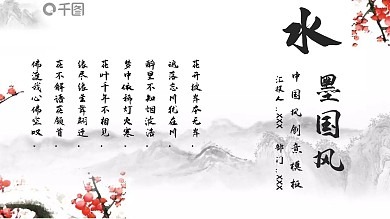 千图
水
墨国风
中国风创意模板
汇报人：XXX 部门：XXX
花开彼岸本无岸
魂落忘川犹在川
醉里不知烟波浩
梦中依稀灯火寒
花叶千年不相见
缘尽缘生舞翩迁
花不解语花颔首
佛渡我心佛空叹。